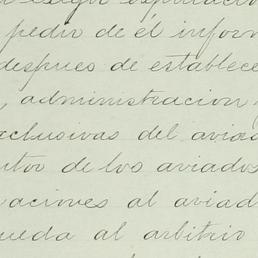 pedir de él inform
despues de establece
, administracion y
clusivas del aviad
ntos de los aviados
aciones al aviad
ueda al arbitrio